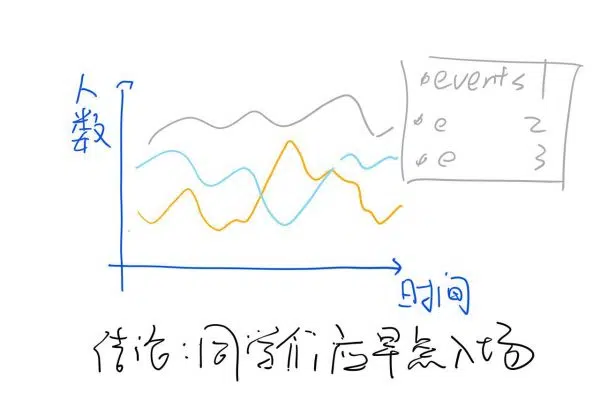 人数
events 1
e 2
e 3
时间
结论:同学们应早点入场